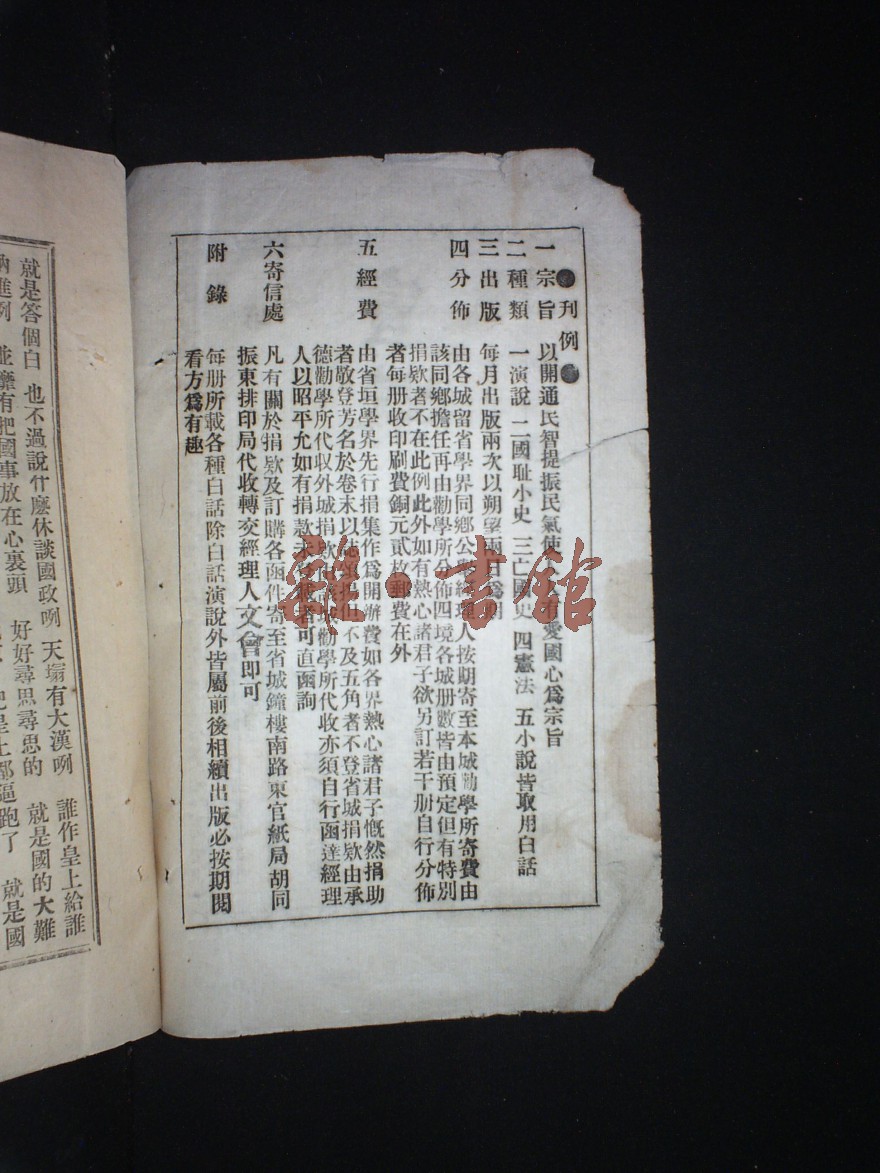 ●刊例●
一宗旨 以開通民智提振民氣使人人有愛國心爲宗旨
二種類 一演說 二國耻小史 三亡國史 四憲法 五小說皆取用白話
三出版 每月出版兩次以朔望兩日爲期
四分佈 由各城留省學界同鄉公 經理人按期寄至本城勸學所寄費由
該同鄉擔任再由勸學所分佈四境各城册數皆由預定但有特別
捐欵者不在此例此外如有熱心諸君子欲另訂若干册自行分佈
者每册收印刷費銅元貳枚郵費在外
五經費 由省垣學界先行捐集作爲開辦費如各界熱心諸君子慨然捐助
者敬登芳名於卷末以誌 揚但不及五角者不登省城捐欵由承
德勸學所代收外城捐欵由 城勸學所代收亦須自行函達經理
人以昭平允如有捐款未 載者可直函詢
六寄信處 凡有關於捐欵及訂購各函件寄至省城鐘樓南路東官紙局胡同
振東排印局代收轉交經理人文會即可
附錄 每册所載各種白話除白話演說外皆屬前後相續出版必按期閱
看方爲有趣
雜·書館
誰作皇上給誰
就是答個白 也不過說什麽休談國政咧 天塌有大漢咧
就是國的大難
好好尋思尋思的
並靡有把國事放在心裏頭
進咧
就是國
把皇上都逼跑了